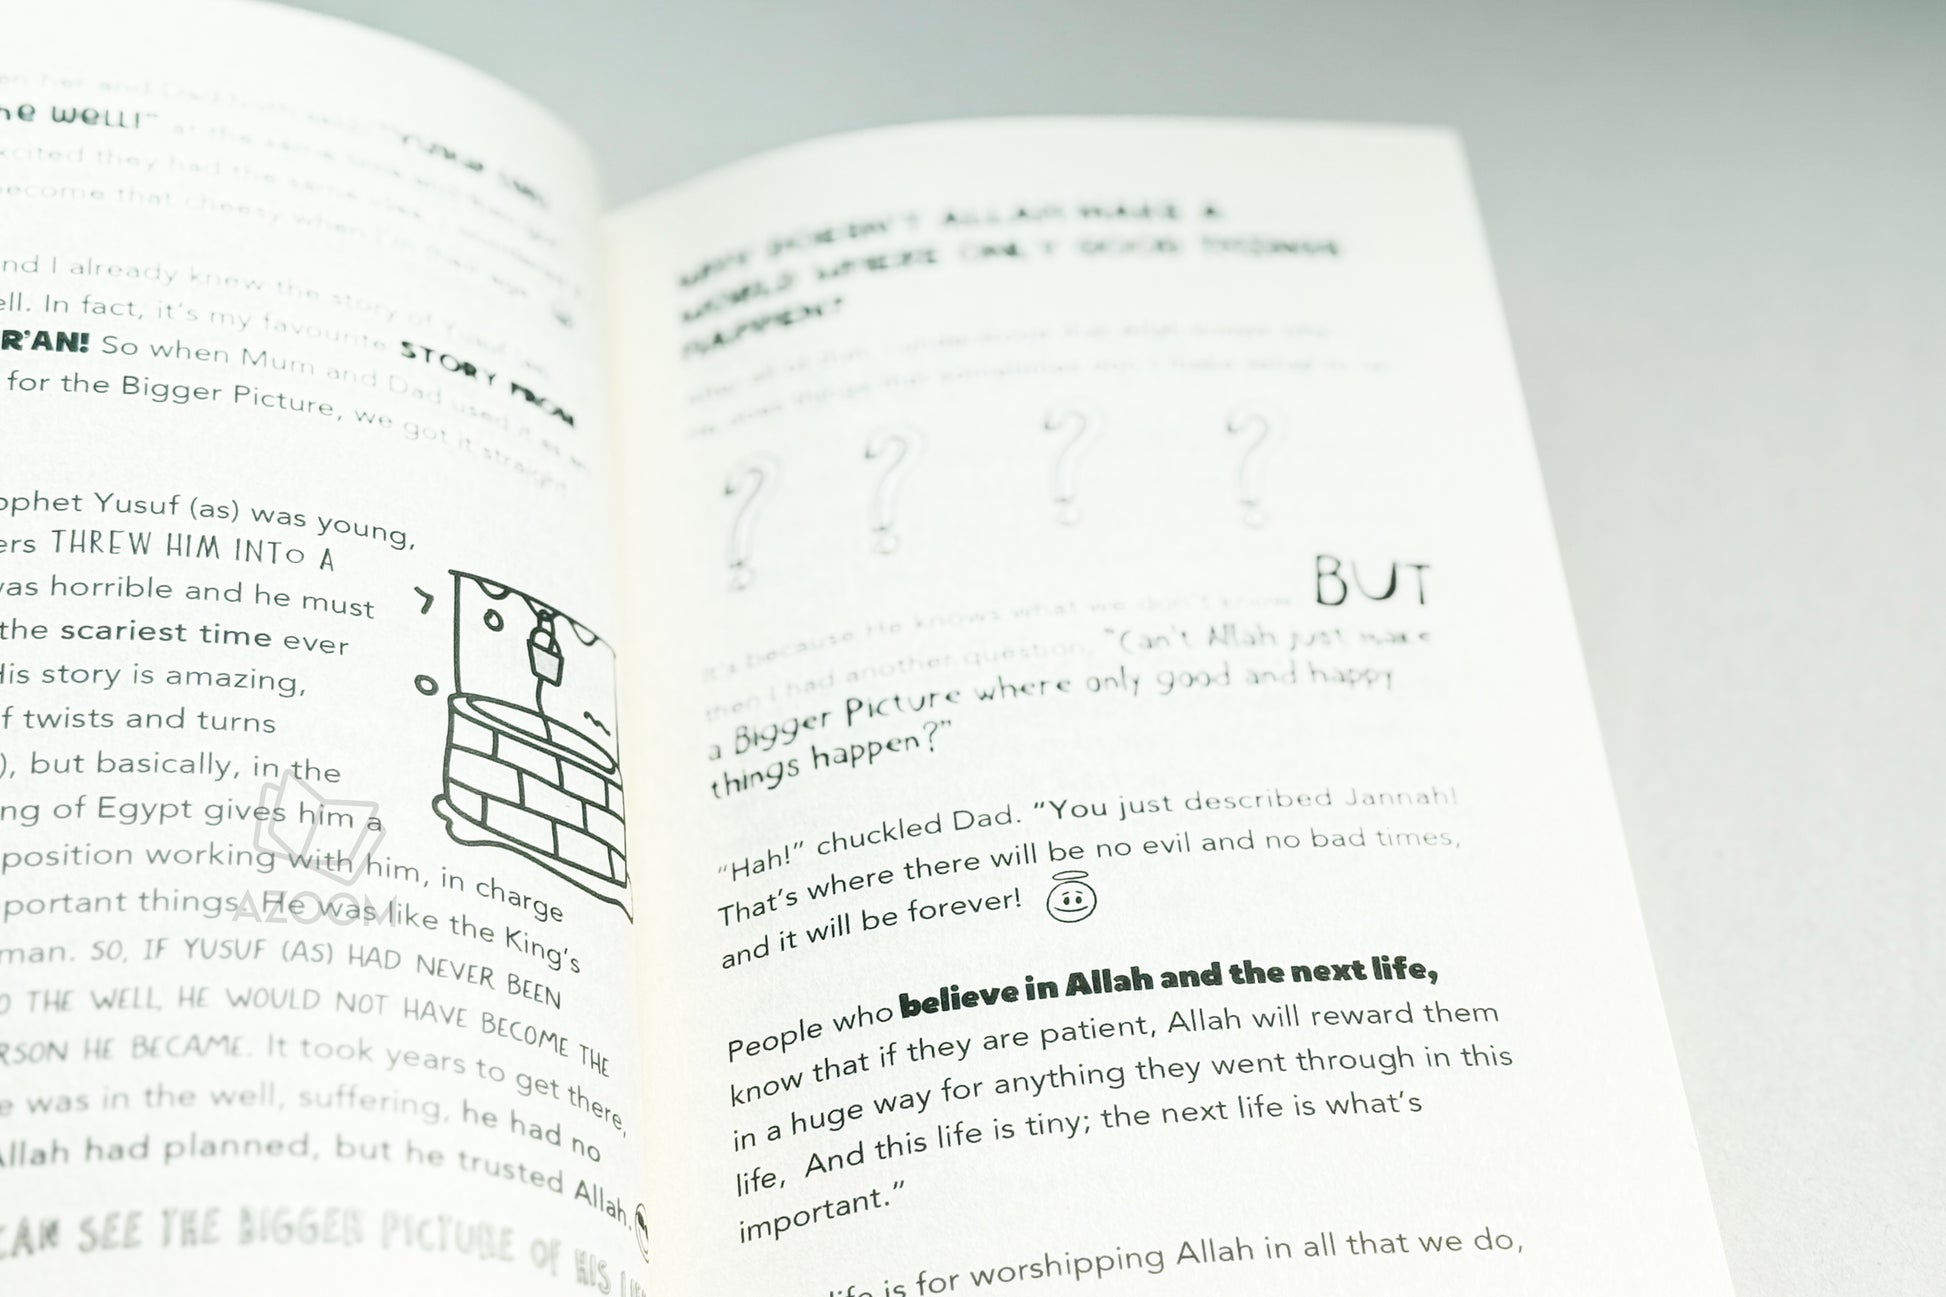 he well!"
excited they had the same
become that cheesy when I'm
nd I already knew the story of Yusuf
ell. In fact, it's my favourite STORY FROM
R'AN! So when Mum and Dad used it as an
for the Bigger Picture, we got it straight
ophet Yusuf (as) was young,
ers THREW HIM INTO A
was horrible and he must
the scariest time ever
His story is amazing,
f twists and turns
), but basically, in the
ng of Egypt gives him a
position working with him, in charge
portant things. He was like the King's
man. SO, IF YUSUF (AS) HAD NEVER BEEN
O THE WELL, HE WOULD NOT HAVE BECOME THE
RSON HE BECAME. It took years to get there,
e was in the well, suffering, he had no
Allah had planned, but he trusted Allah.
CAN SEE THE BIGGER PICTURE OF HIS
AZOOM
WHY DOESN'T ALLAH MAKE A
WORLD WHERE ONLY GOOD THINGS
HAPPEN?
? ? ? ?
It's because He knows what we don't know. BUT
then I had another question, "Can't Allah just make
a Bigger Picture where only good and happy
things happen?"
"Hah!" chuckled Dad. "You just described Jannah!
That's where there will be no evil and no bad times,
and it will be forever!
People who believe in Allah and the next life,
know that if they are patient, Allah will reward them
in a huge way for anything they went through in this
life, And this life is tiny; the next life is what's
important."
life is for worshipping Allah in all that we do,